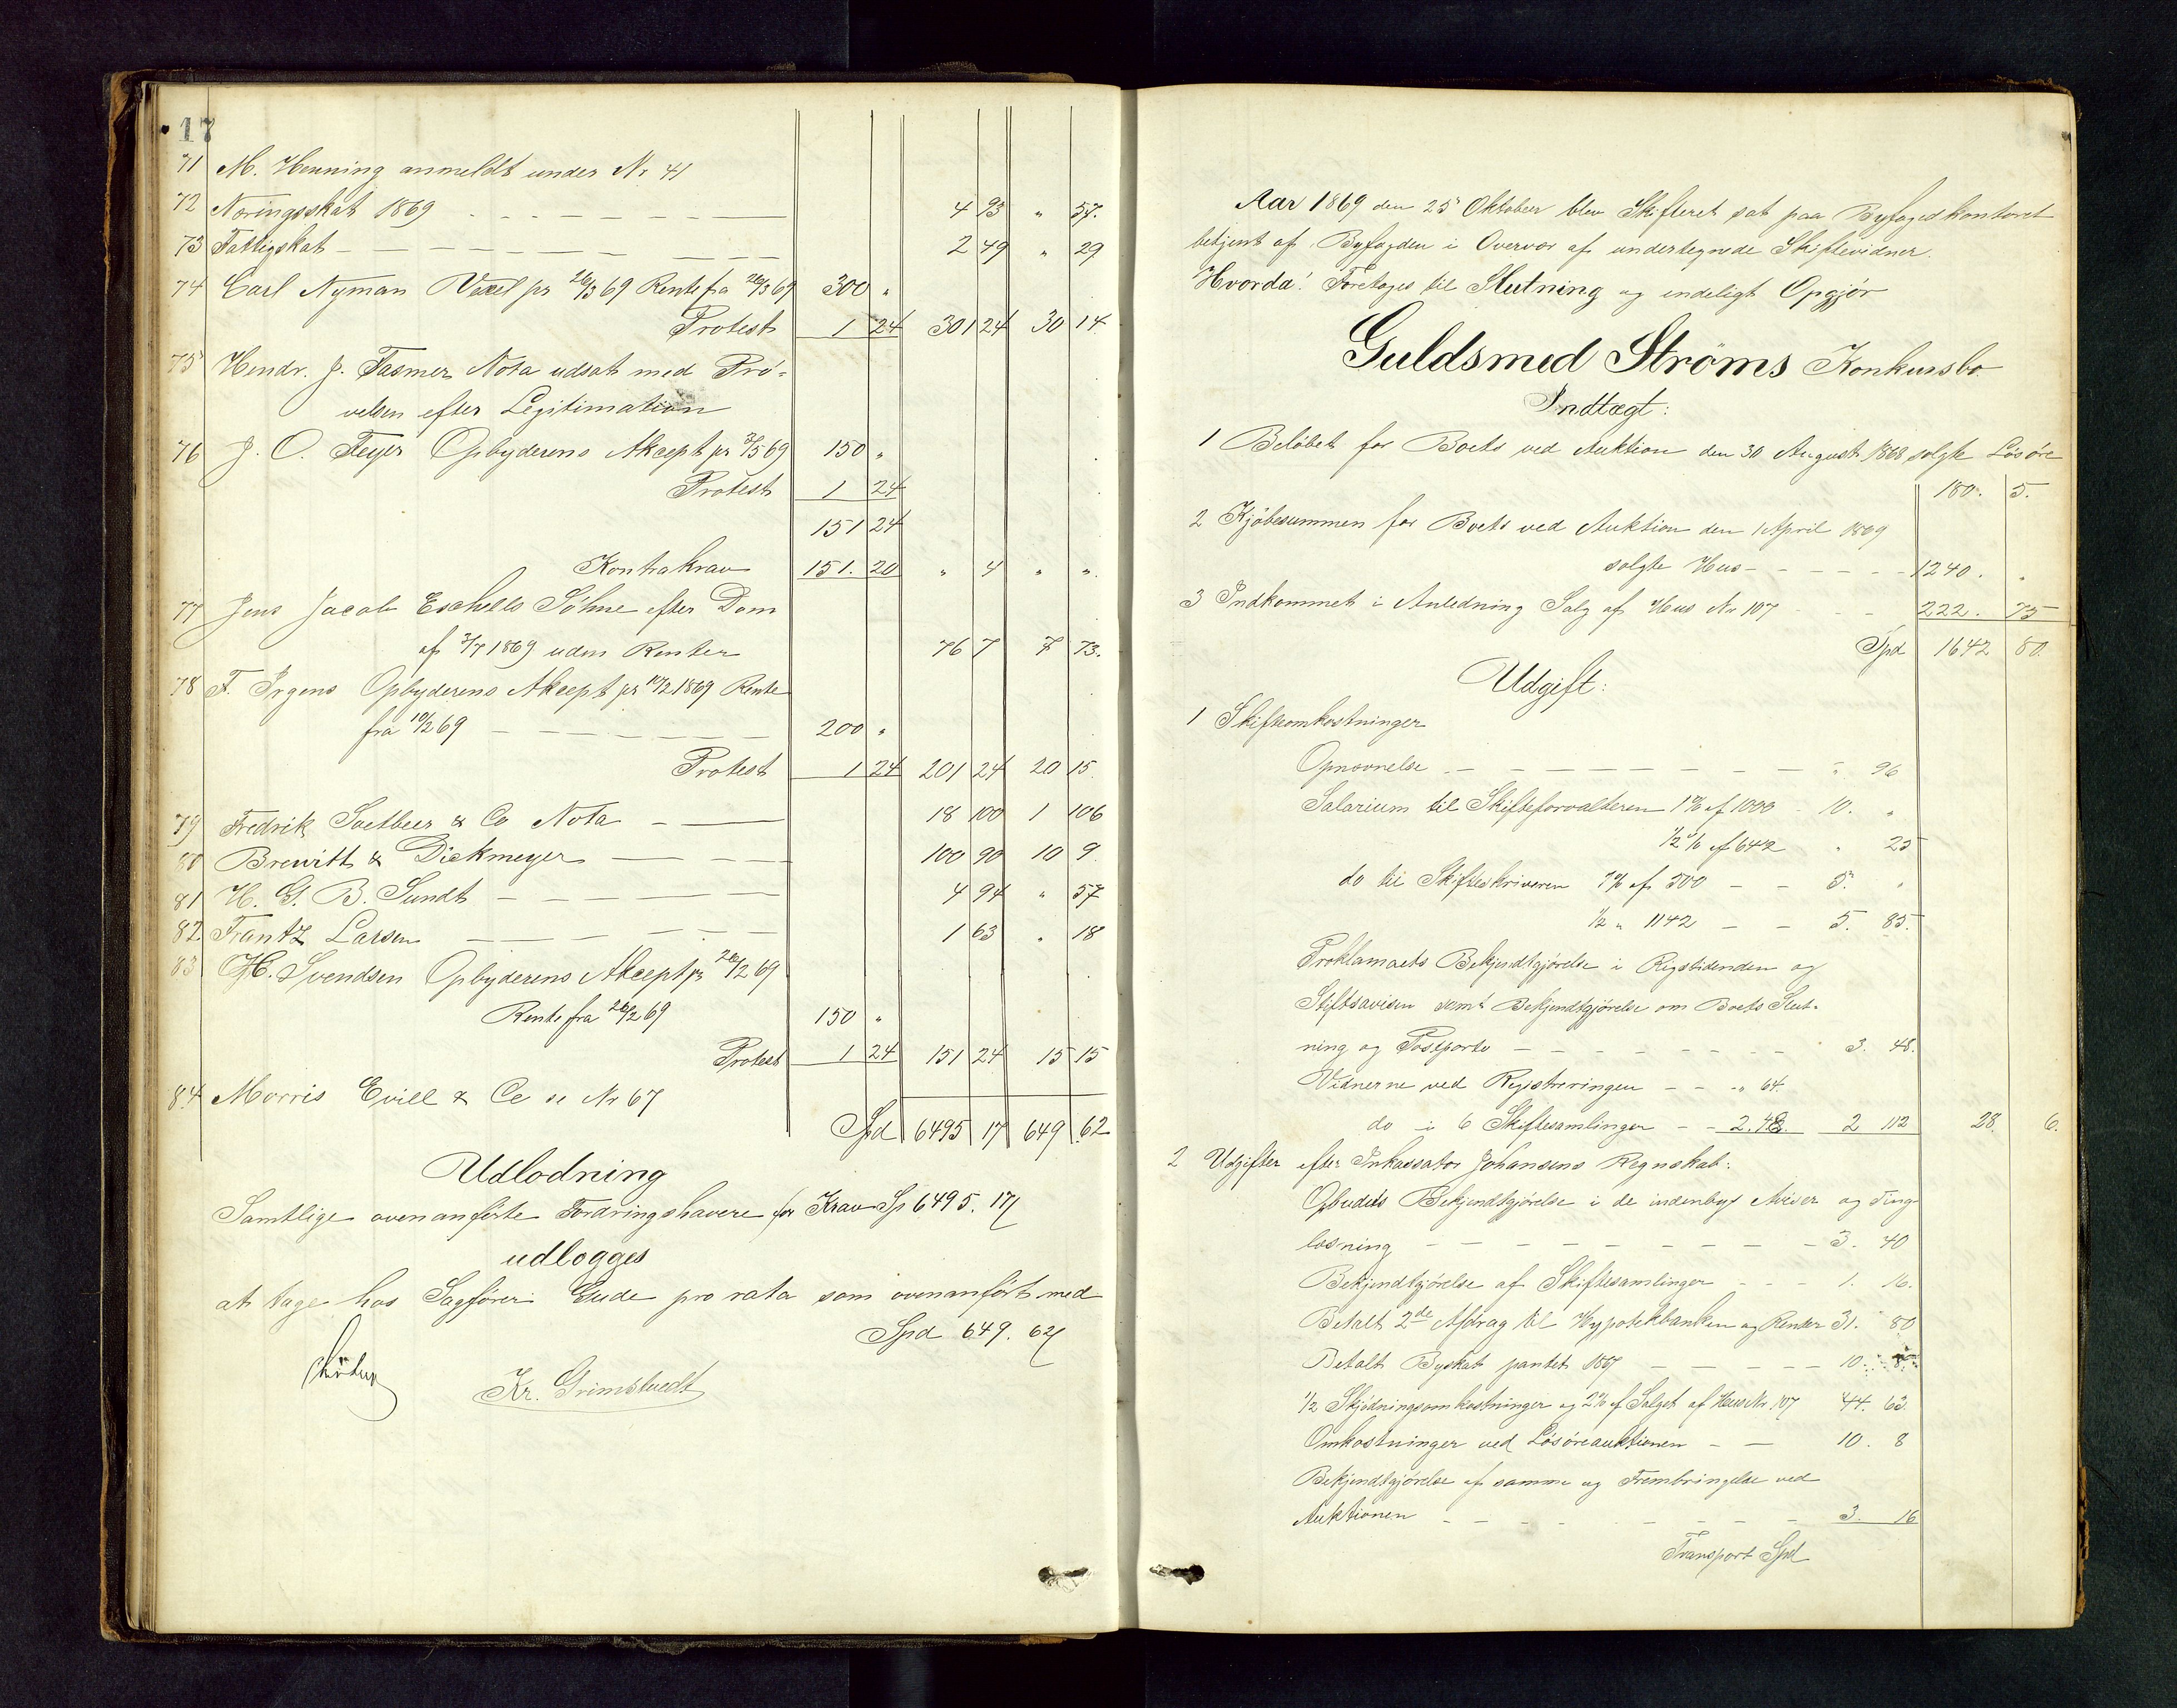 17
71 M. Henning anmeldt under Nr 41
72 Næringsskat 1869 - - - - 4 93 " 57.
73 Fattigskat - - - - 2 49 " 29
74 Carl Nyman Vexel pr 26/3 69 Rente fra 26/3 69 300 "
Protest 1 24 301 24 30 14
75 Hendr. J. Fasmer Nota udsat med Prö-
velsen efter Legitimation
76 J. C. Feyer Opbyderens Akcept pr 3/5 69 150 "
Protest 1 24
151 24
Kontrakrav 151. 20 " 4 " ".
77 Jens Jacob Eschells Söhne efter Dom
af 3/7 1869 uden Renter 76 7 7 73.
78 F. Irgens Opbyderens Akcept pr 10/2 1869 Rente
fra 10/2 69 - - - - 200 "
Protest 1 24 201 24 20 15.
79 Fredrik Soetbeer & Co Nota - - 18 100 1 106
80 Brewitt & Dickmeyer - - - 100 90 10 9.
81 H. G. B. Sundt - - - - 4 94 " 57
82. Frantz Larsen - - - - 1 63 " 18
83 H. Svendsen Opbyderens Akcept pr 26/2 69
Rente fra 26/2 69 150 "
Protest 1 24 151 24 15 15
84 Morris Evill & Co se Nr 67
Spd 6495 17 649 62
Udlodning
Samtlige ovenanförte Fordringshavere for Krav Sp 6495. 17
udlægges
at tage hos Sagförer Gude pro rata som ovenanfört med
Spd 649. 62
Kr. Grimstvedt
Aar 1869 den 25 Oktober blev Skifteret sat paa Byfogedkontoret
betjent af Byfogden i Overvær af undertegnede Skiftevidner.
Hvorda! Foretoges til Slutning og endeligt Opgjör
Guldsmed Ströms Konkursbo
Indtægt:
1 Belöbet for Boets ved Auktion den 30 August 1868 solgte Lösöre
180. 5.
2 Kjöbesummen for Boets ved Auktion den 1 April 1869
solgte Hus - - - - 1240. "
3 Indkommet i Anledning Salg af Hus Nr 107 - - - 222. 75
Spd 1642 80.
Udgift:
1 Skifteomkostninger
Opnævnelse - - - - - - " 96
Salarium til Skifteforvalteren 1% af 1000 - 10. "
1/2 % af 642 " 25
do til Skifteskriveren 1% af 500 - - 5. "
1/2 " 1142 - - 5. 85.
Proklamaets Bekjendtgjörelse i Rigstidenden og
Stiftsavisen samt Bekjendtgjörelse om Boets Slut-
ning og Postporto - - - - - 3. 48.
Vidnerne ved Registreringen - - " 64
do i 6 Skiftesamlinger - - 2.48. 2 112 28. 6.
2 Udgifter efter Inkassator Johansens Regnskab:
Opbudets Bekjendtgjörelse i de indenbys Aviser og Ting-
læsning - - - - - - 3. 40
Bekjendtgjörelse af Skiftesamlinger - - - 1. 16.
Betalt 2de Afdrag til Hypotekbanken og Renter 31. 80
Betalt Byskat pantet 1867 - - - - 10.
1/2 Skjödningsomkostninger og 2% af Salget af Hus Nr. 107 44. 63.
Omkostninger ved Lösöreauktionen - - 10. 8
Bekjendtgjörelse af samme og Frembringelse ved
Auktionen - - - - - - 3. 16
Transport Spd